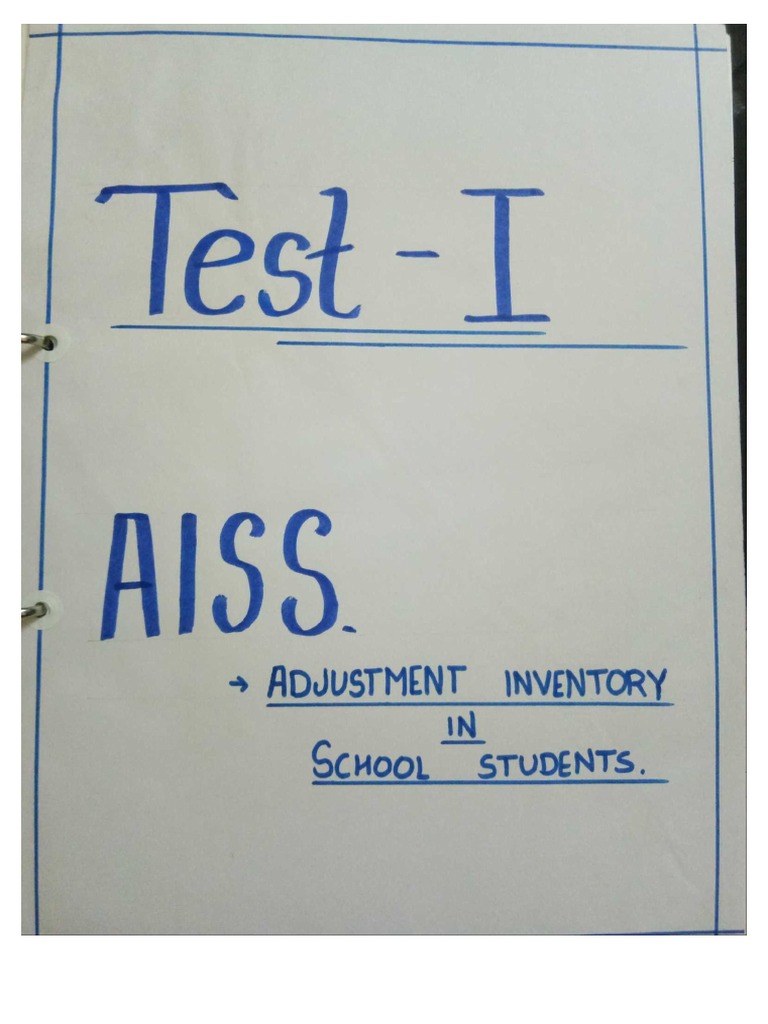 Test - I
AISS.
→ ADJUSTMENT INVENTORY
IN
SCHOOL STUDENTS.